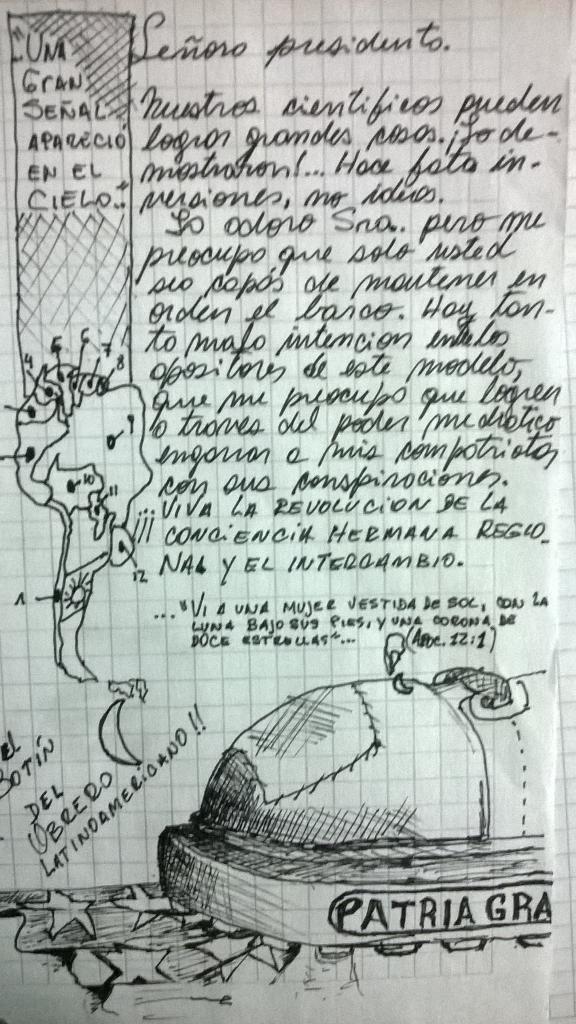 "UNA
GRAN
SEÑAL
APARECIÓ
EN EL
CIELO.."
Señora presidenta.
Nuestros cientificos pueden
lograr grandes cosas. ¡Lo de-
mostraron!... Hace falta in-
versiones, no ideas.
La adoro Sra.. pero me
preocupa que solo usted
sea capás de mantener en
orden el barco. Hay tan-
ta mala intencion entre los
opositores de este modelo,
que me preocupa que logren
a traves del poder mediatico
engañar a mis compatriotas
con sus conspiraciones.
¡¡¡ VIVA LA REVOLUCION DE LA
CONCIENCIA HERMANA REGIO-
NAL Y EL INTERCAMBIO.
..."VI A UNA MUJER VESTIDA DE SOL, CON LA
LUNA BAJO SUS PIES, Y UNA CORONA DE
DOCE ESTRELLAS"...
(Apoc. 12:1)
4 5 6 7
8
9
10
11
12
1
EL
BOTÍN
DEL
OBRERO
LATINOAMERICANO!!
PATRIA GRA